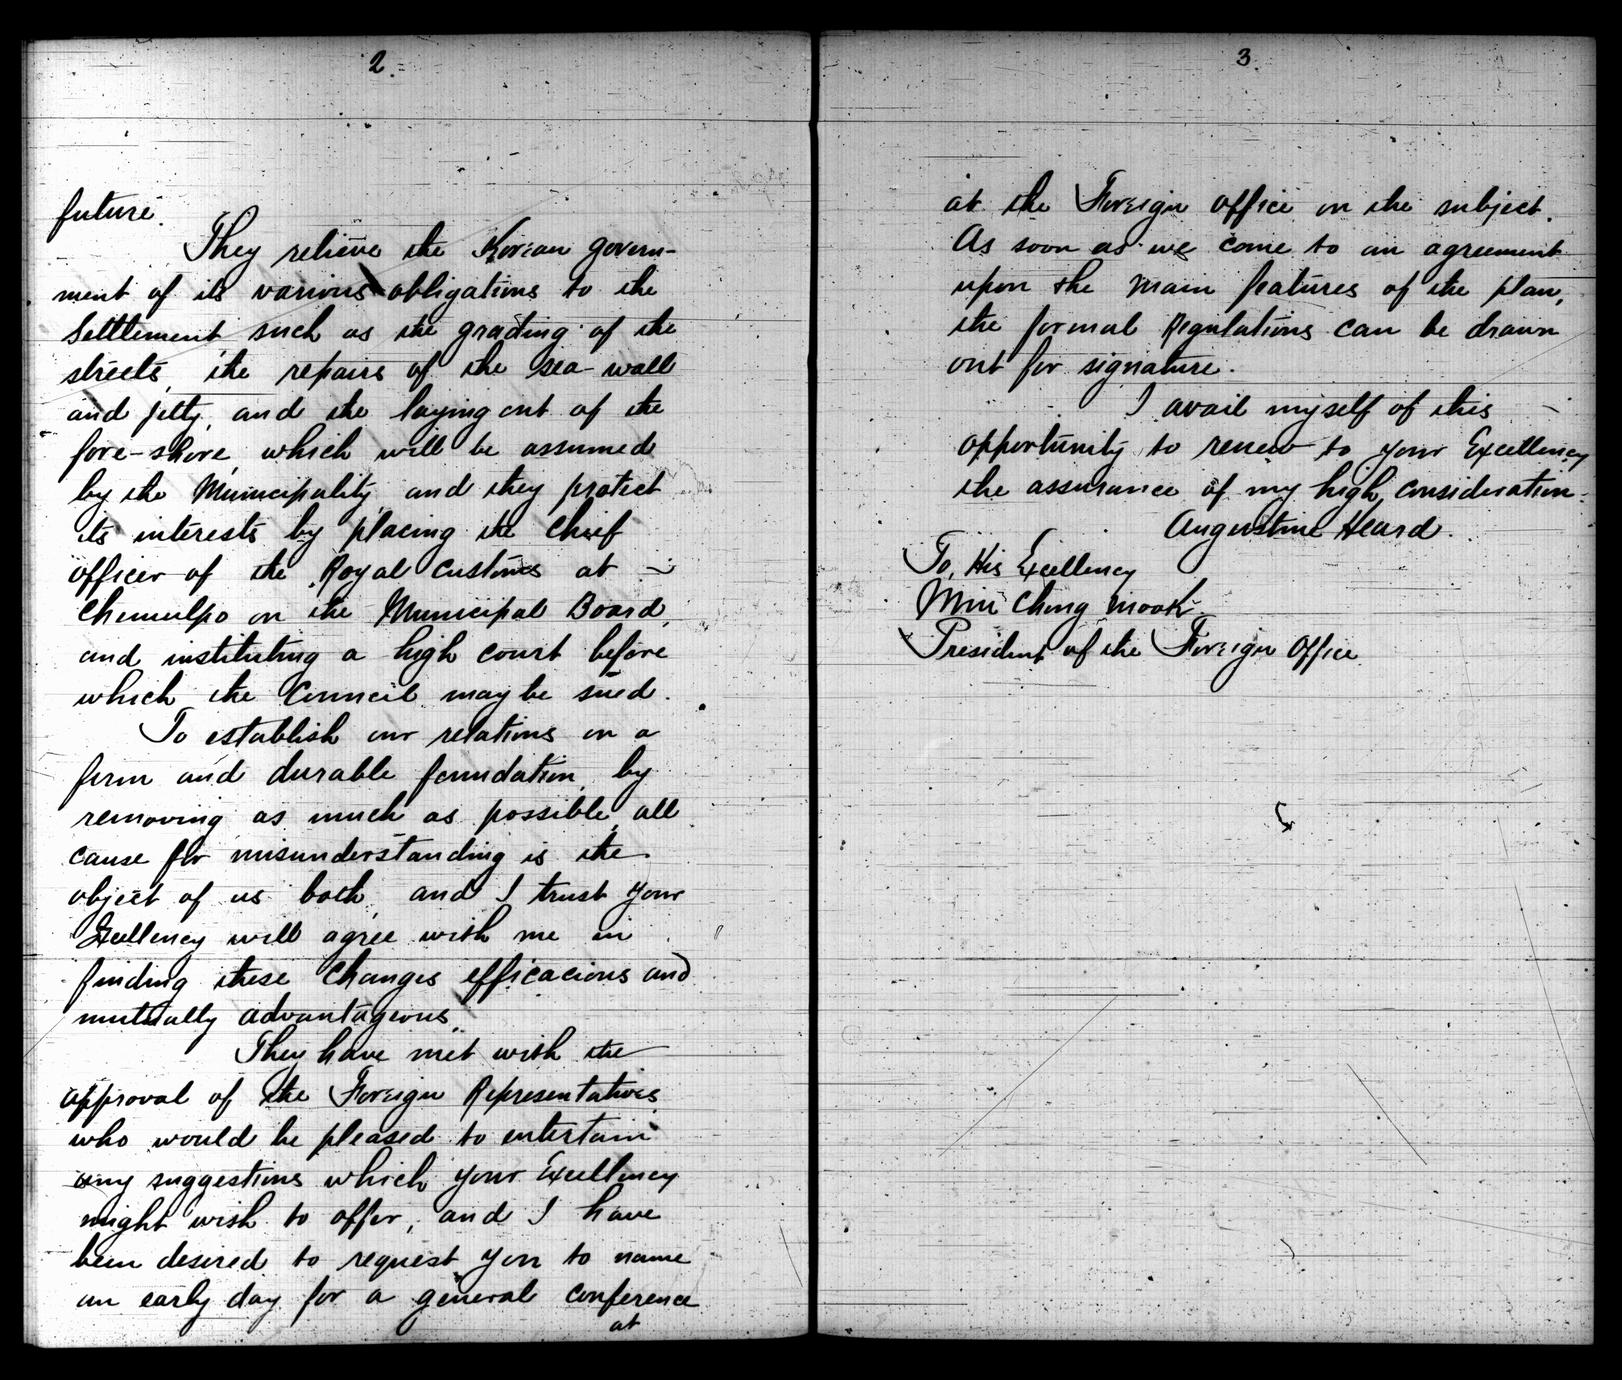 2.
future.
They relieve the Korean govern-
ment of its various obligations to the
Settlement such as the grading of the
streets, the repairs of the sea-wall
and jetty, and the laying out of the
fore-shore, which will be assumed
by the Municipality, and they protect
its interests by placing the chief
officer of the Royal Customs at
Chemulpo on the Municipal Board,
and instituting a high court before
which the Council may be sued.
To establish our relations on a
firm and durable foundation, by
removing as much as possible, all
cause for misunderstanding is the
object of us both, and I trust your
Excellency will agree with me in
finding these changes efficacious and
mutually advantageous.
They have met with the
approval of the Foreign Representatives
who would be pleased to entertain
any suggestions which your Excellency
might wish to offer, and I have
been desired to request you to name
an early day for a general conference
at
3.
at the Foreign office on the subject.
As soon as we come to an agreement
upon the main features of the plan,
the formal Regulations can be drawn
out for signature.
I avail myself of this
opportunity to renew to your Excellency
the assurance of my high consideration.
Augustine Heard.
To, His Excellency
Min Chong Mook
President of the Foreign Office